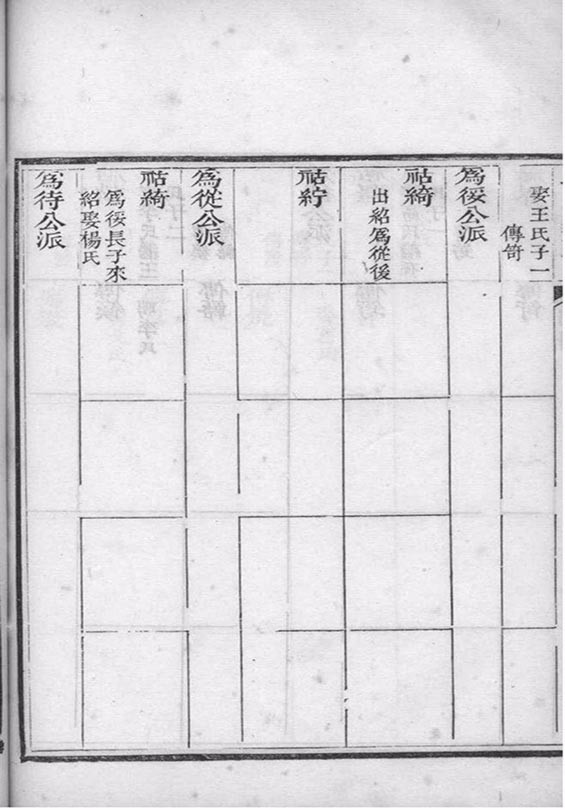 娶王氏子一
傳笴
為綏公派
祜綺
出紹為從後
祜紵
為從公派
祜綺
為綏長子來
紹娶楊氏
為待公派